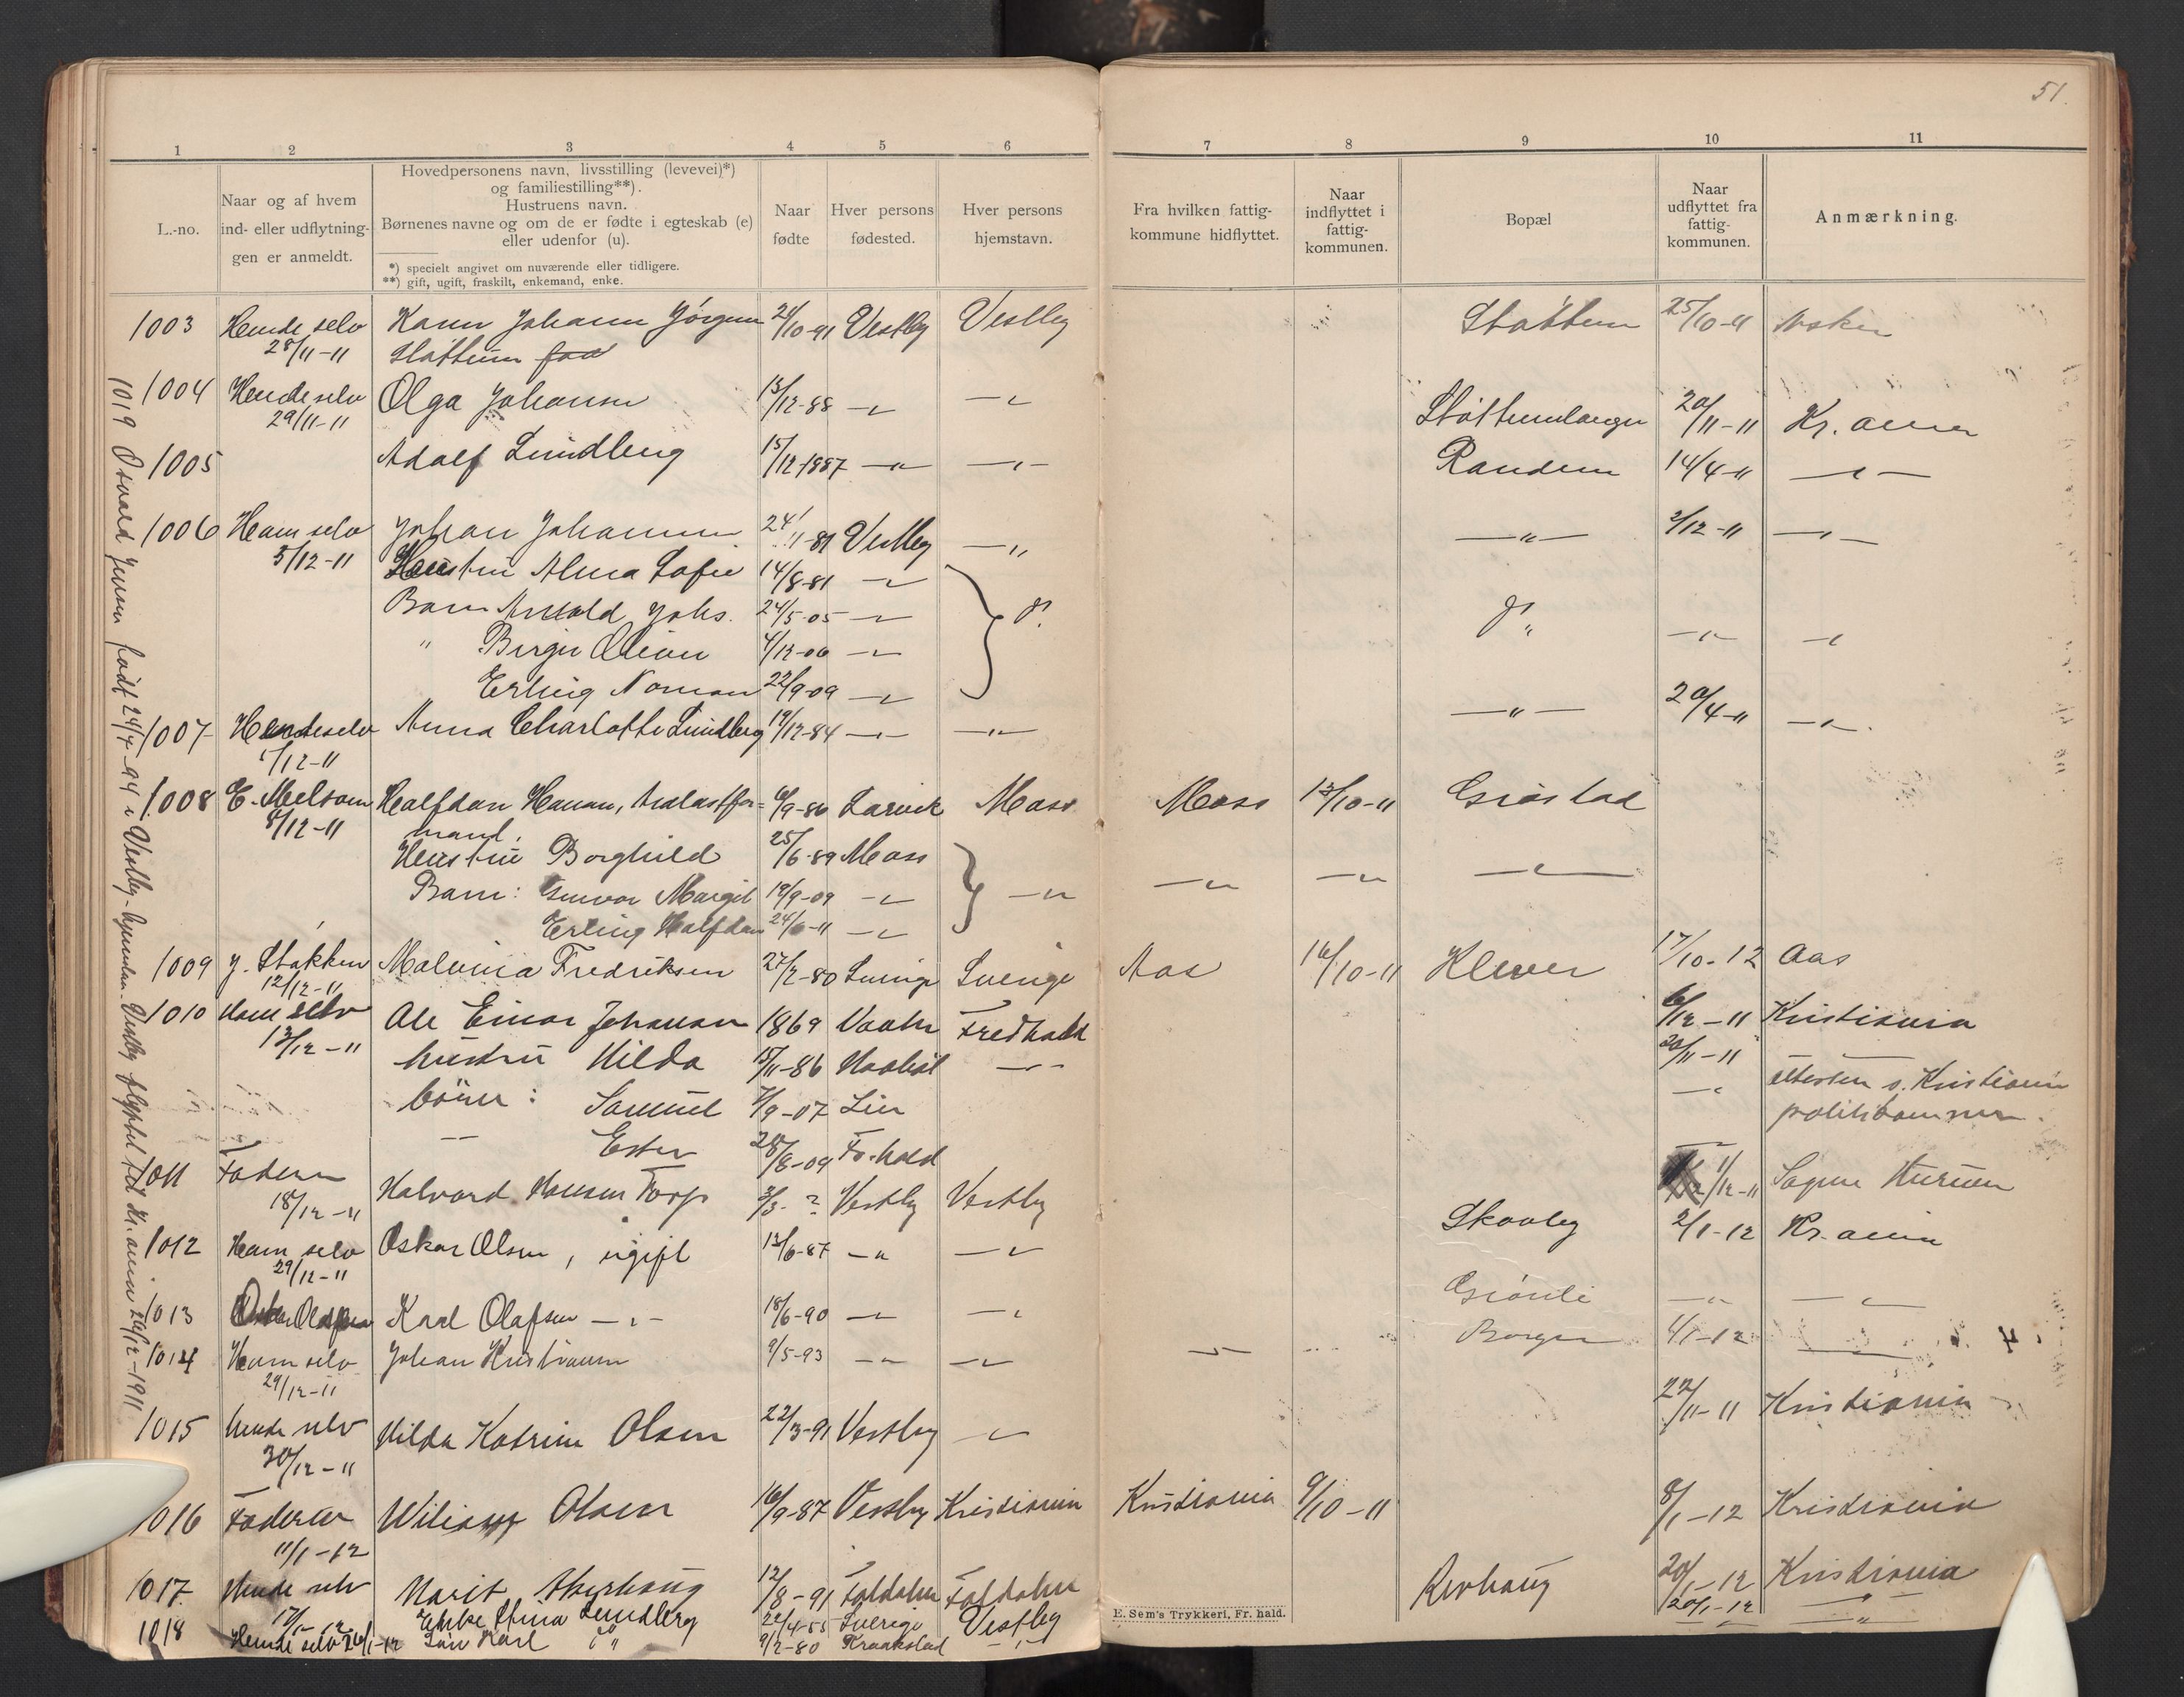 51.
1 2 3 4 5 6 7 8 9 10 11
L.-no.
Naar og af hvem
ind- eller udflytnin-
gen er anmeldt.
Hovedpersonens navn, livsstilling (levevei)*)
og familiestilling**).
Hustruens navn.
Børnenes navne og om de er fødte i egteskab (e)
eller udenfor (u).
*) specielt angivet om nuværende eller tidligere.
**) gift, ugift, fraskilt, enkemand, enke.
Naar
fødte
Hver persons
fødested.
Hver persons
hjemstavn.
Fra hvilken fattig-
kommune hidflyttet.
Naar
indflyttet i
fattig-
kommunen.
Bopæl
Naar
udflyttet fra
fattig-
kommunen.
Anmærkning.
1003 Hende selv Karen Johanne Jørgensen 24/10-91 Vestby Vestby Støttum 25/10-11 Asker
28/11-11 Støttum
1004 Hende selv Olga Johansen 13/12-88 -"- -"- 20/11-11 Kr.ania
29/11-11
1005 Adolf Lundberg 15/12-1887 -"- -"- Randem 14/4-11 -"-
1006 Ham selv Johan Johansen 24/11-81 Vestby -"- -"- 2/12-11 -"-
5/12-11 Hustru Alma Sofie 14/8-81 -"-
Barn Arnold Johs. 24/5-05 -"- do. do. -"- -"-
" Birger 4/12-06 -"-
Erling Norman 22/9-09 -"-
1007 Hende selv Anna Charlotte Lundberg 19/12-84 -"- -"- -"- 20/4-11 -"-
/12-11
1008 E. Melsom Halfdan Hansen, 6/9-86 Larvik Moss Moss 13/10-11 Grøstad
8/12-11 mand.
Hustru Borghild 25/6-89 Moss
Barn: Gunvor Margit 19/9-09 -"- -"- -"- -"- -"-
Erling Halfdan 24/6-11 -"-
1009 J. Stakken Malvina Fredriksen 27/2-80 Sverige Sverige Aas 16/10-11 Klever 17/10-12 Aas
12/12-11
1010 Ham selv Ole Einar Johansen 1869 Vaaler Fredhald 6/12-11 Kristiania
13/12-11 hustru Hilda 15/11-86 Haabøl -"- 20/11-11
børn: Samuel 7/9-07 Lier -"- attesten s. Kristiania
-"- Ester 28/8-09 Fr.hald politikammer.
1011 Faderen Halvard Hansen Torp 3/3- ? Vestby Vestby 1/12-11 Sagene Hurum
18/12-11
1012 Ham selv Oskar Olsen, ugift 13/6-87 -"- -"- Skovby 2/1-12 Kr.ania
29/12-11
1013 Karl Olafsen -"- 18/6-90 -"- -"- Grønli -"- -"-
1014 Ham selv Johan Kristiansen 9/5-93 -"- -"- -"- Borgen 4/1-12 -"-
29/12-11
1015 Hende selv Hilda Katrine Olsen 22/3-91 Vestby -"- 22/11-11 Kristiania
30/12-11
1016 Faderen Wiliam Olsen 16/9-87 Vestby Kristiania Kristiania 9/10-11 8/1-12 Kristiania
11/1-12
1017. Hende selv Marit 12/8-91 Foldalen Foldalen Revhaug 20/1-12 Kristiania
17/1-12 Enke Stina Lundberg 22/4-55 Sverige Vestby 20/1-12 -"-
1018 Hende selv 26/1-12 Søn Karl do " 9/2-80 Kraakstad -"- -"- -"-
1019 Osvald Jensen født 24/4-94 i Vestby - hjemstavn Vestby flyttet til Kr.ania 20/12-1911
E. Sem's Trykkeri, Fr. hald.